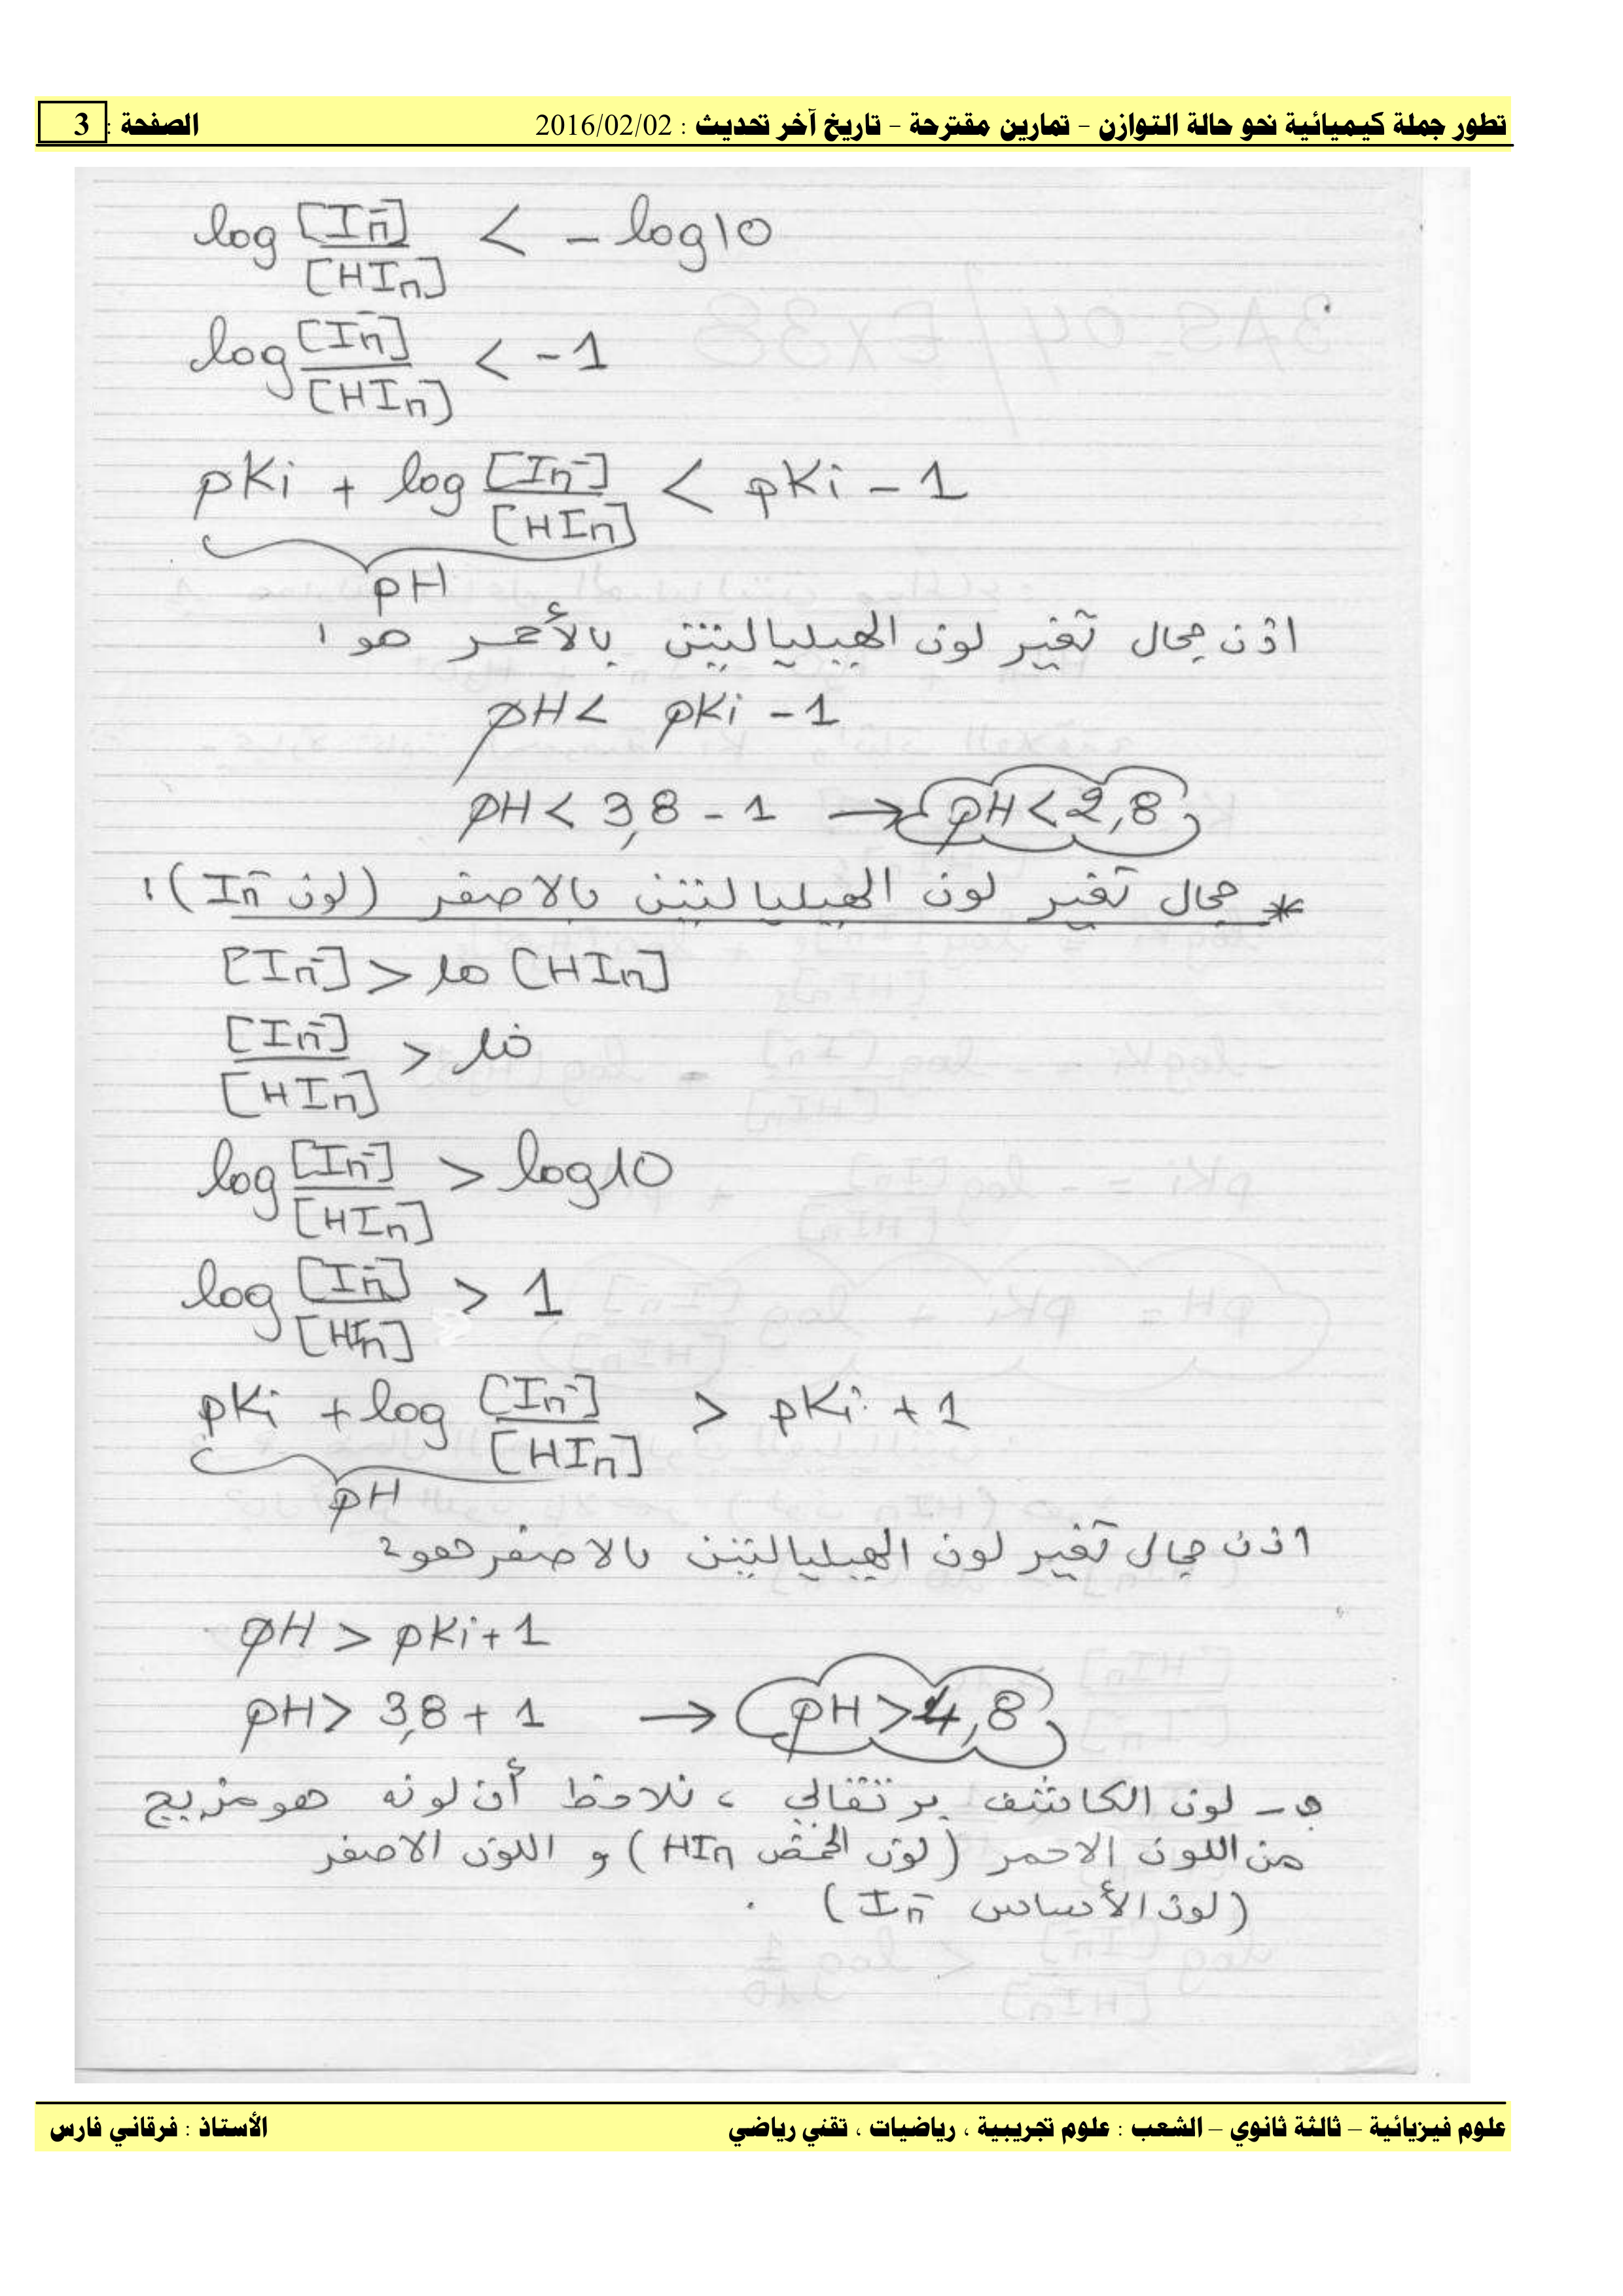 تطور جملة كيميائية نحو حالة التوازن – تمارين مقترحة – تاريخ آخر تحديث : 2016/02/02 الصفحة : 3
log [In⁻]/[HIn] < – log10
log [In⁻]/[HIn] < -1
pKi + log [In⁻]/[HIn] < pKi – 1
pH
اذن مجال تغير لون الهيليانتين بالأحمر هو :
pH < pKi – 1
pH < 3,8 – 1 → pH < 2,8
* مجال تغير لون الهيليانتين بالاصفر (لون In⁻) :
[In⁻] > 10 [HIn]
[In⁻]/[HIn] > 10
log [In⁻]/[HIn] > log10
log [In⁻]/[HIn] > 1
pKi + log [In⁻]/[HIn] > pKi + 1
pH
اذن مجال تغير لون الهيليانتين بالاصفر هو :
pH > pKi + 1
pH > 3,8 + 1 → pH > 4,8
لون الكاشف برتقالي ، نلاحظ أن لونه هو مزيج
من اللون الاحمر (لون الحمض HIn) و اللون الاصفر
(لون الأساس In⁻) .
علوم فيزيائية – ثالثة ثانوي – الشعب : علوم تجريبية ، رياضيات ، تقني رياضي الأستاذ : فرقاني فارس